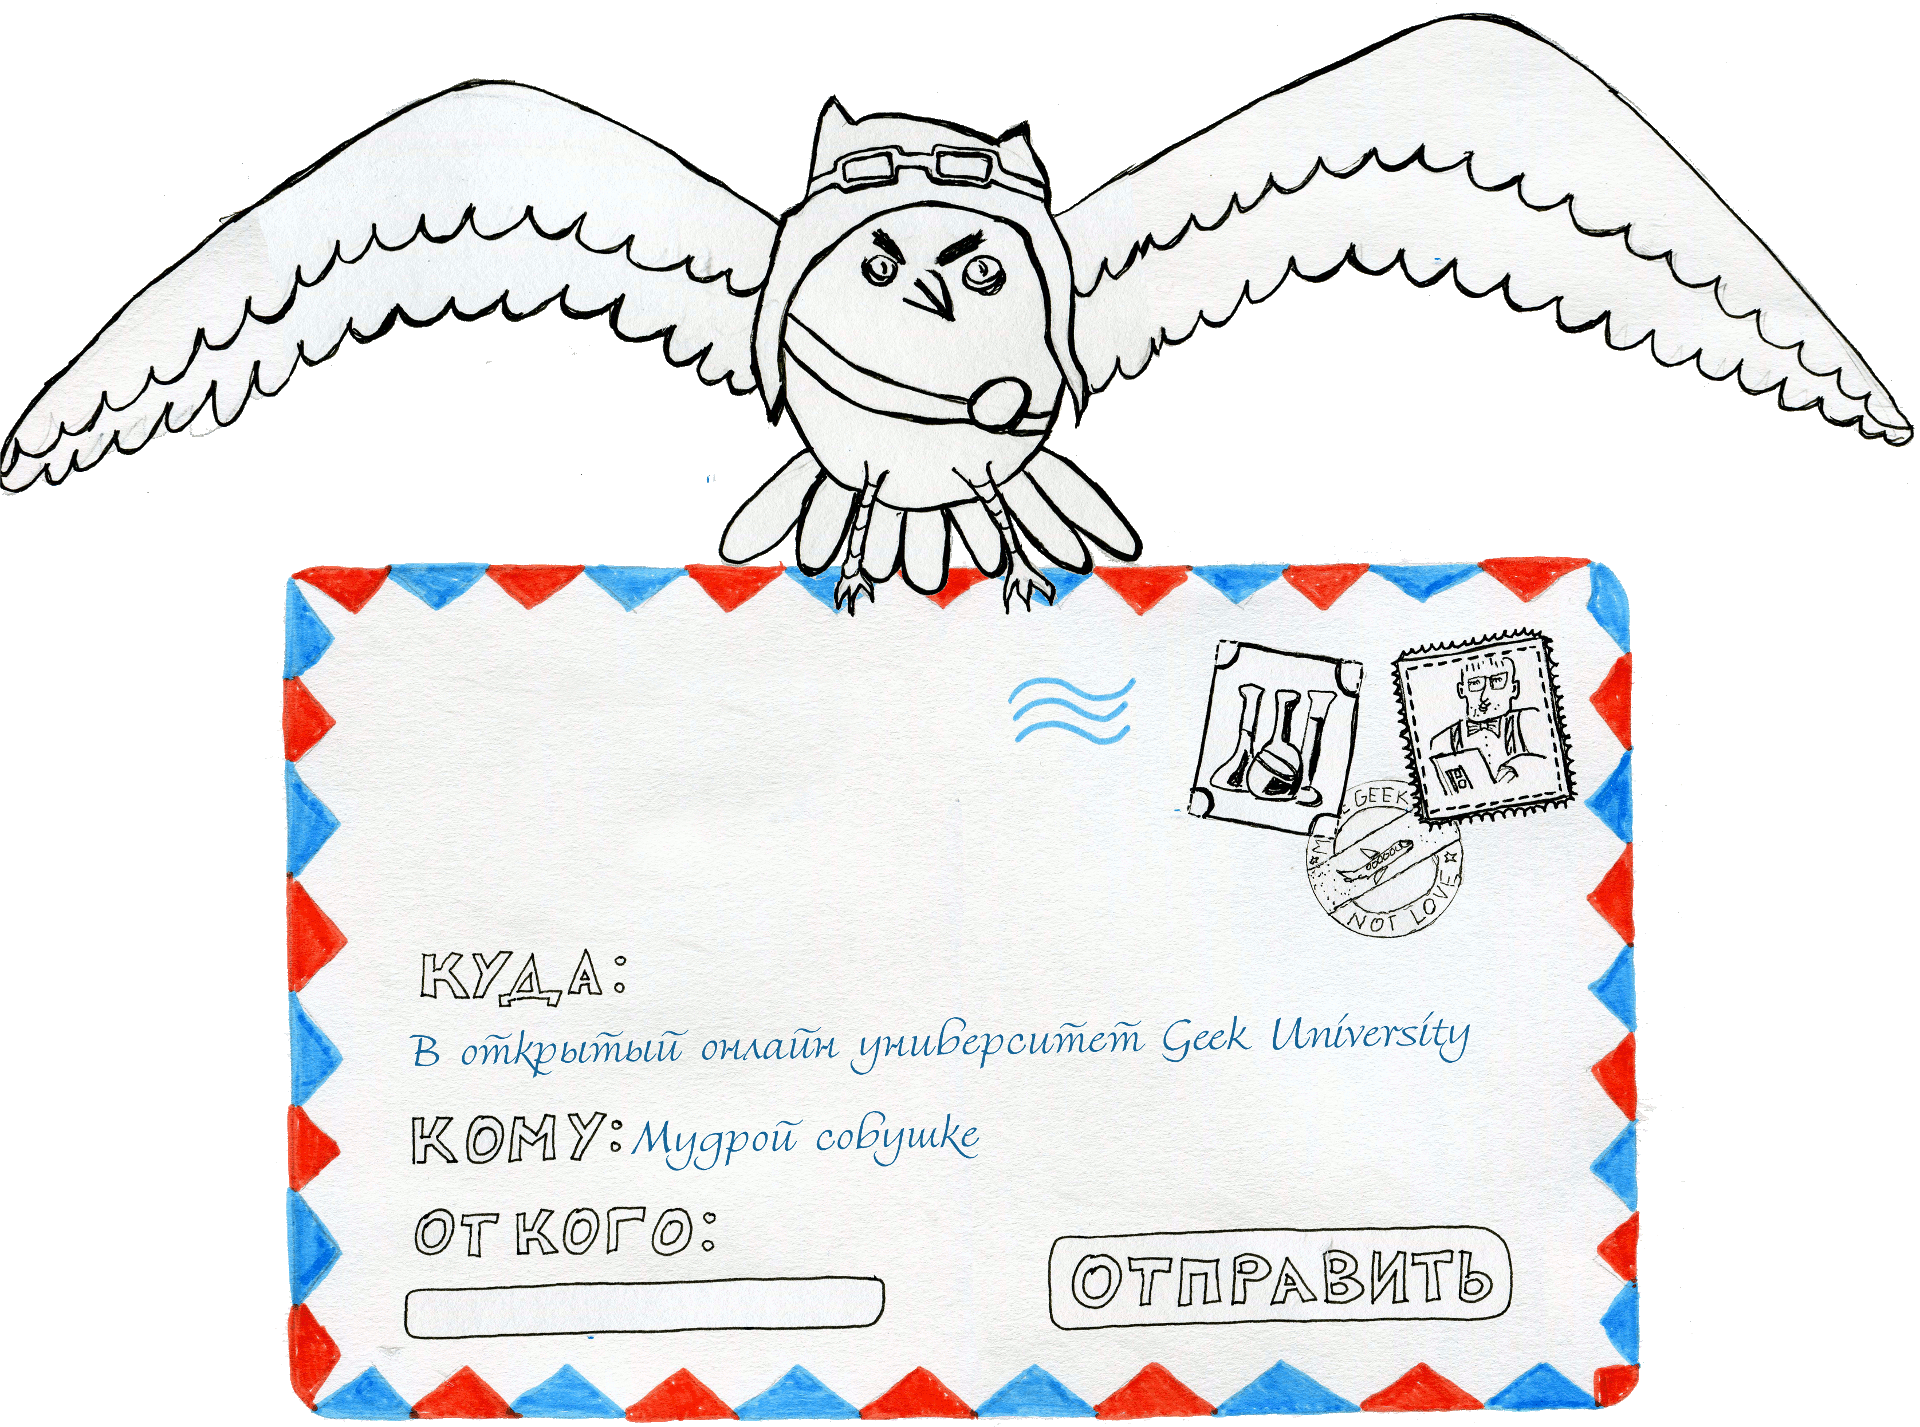 GEEK
NOT LOVE
КУДА:
В открытый онлайн университет Geek University
КОМУ: Мудрой совушке
ОТ КОГО:
ОТПРАВИТЬ